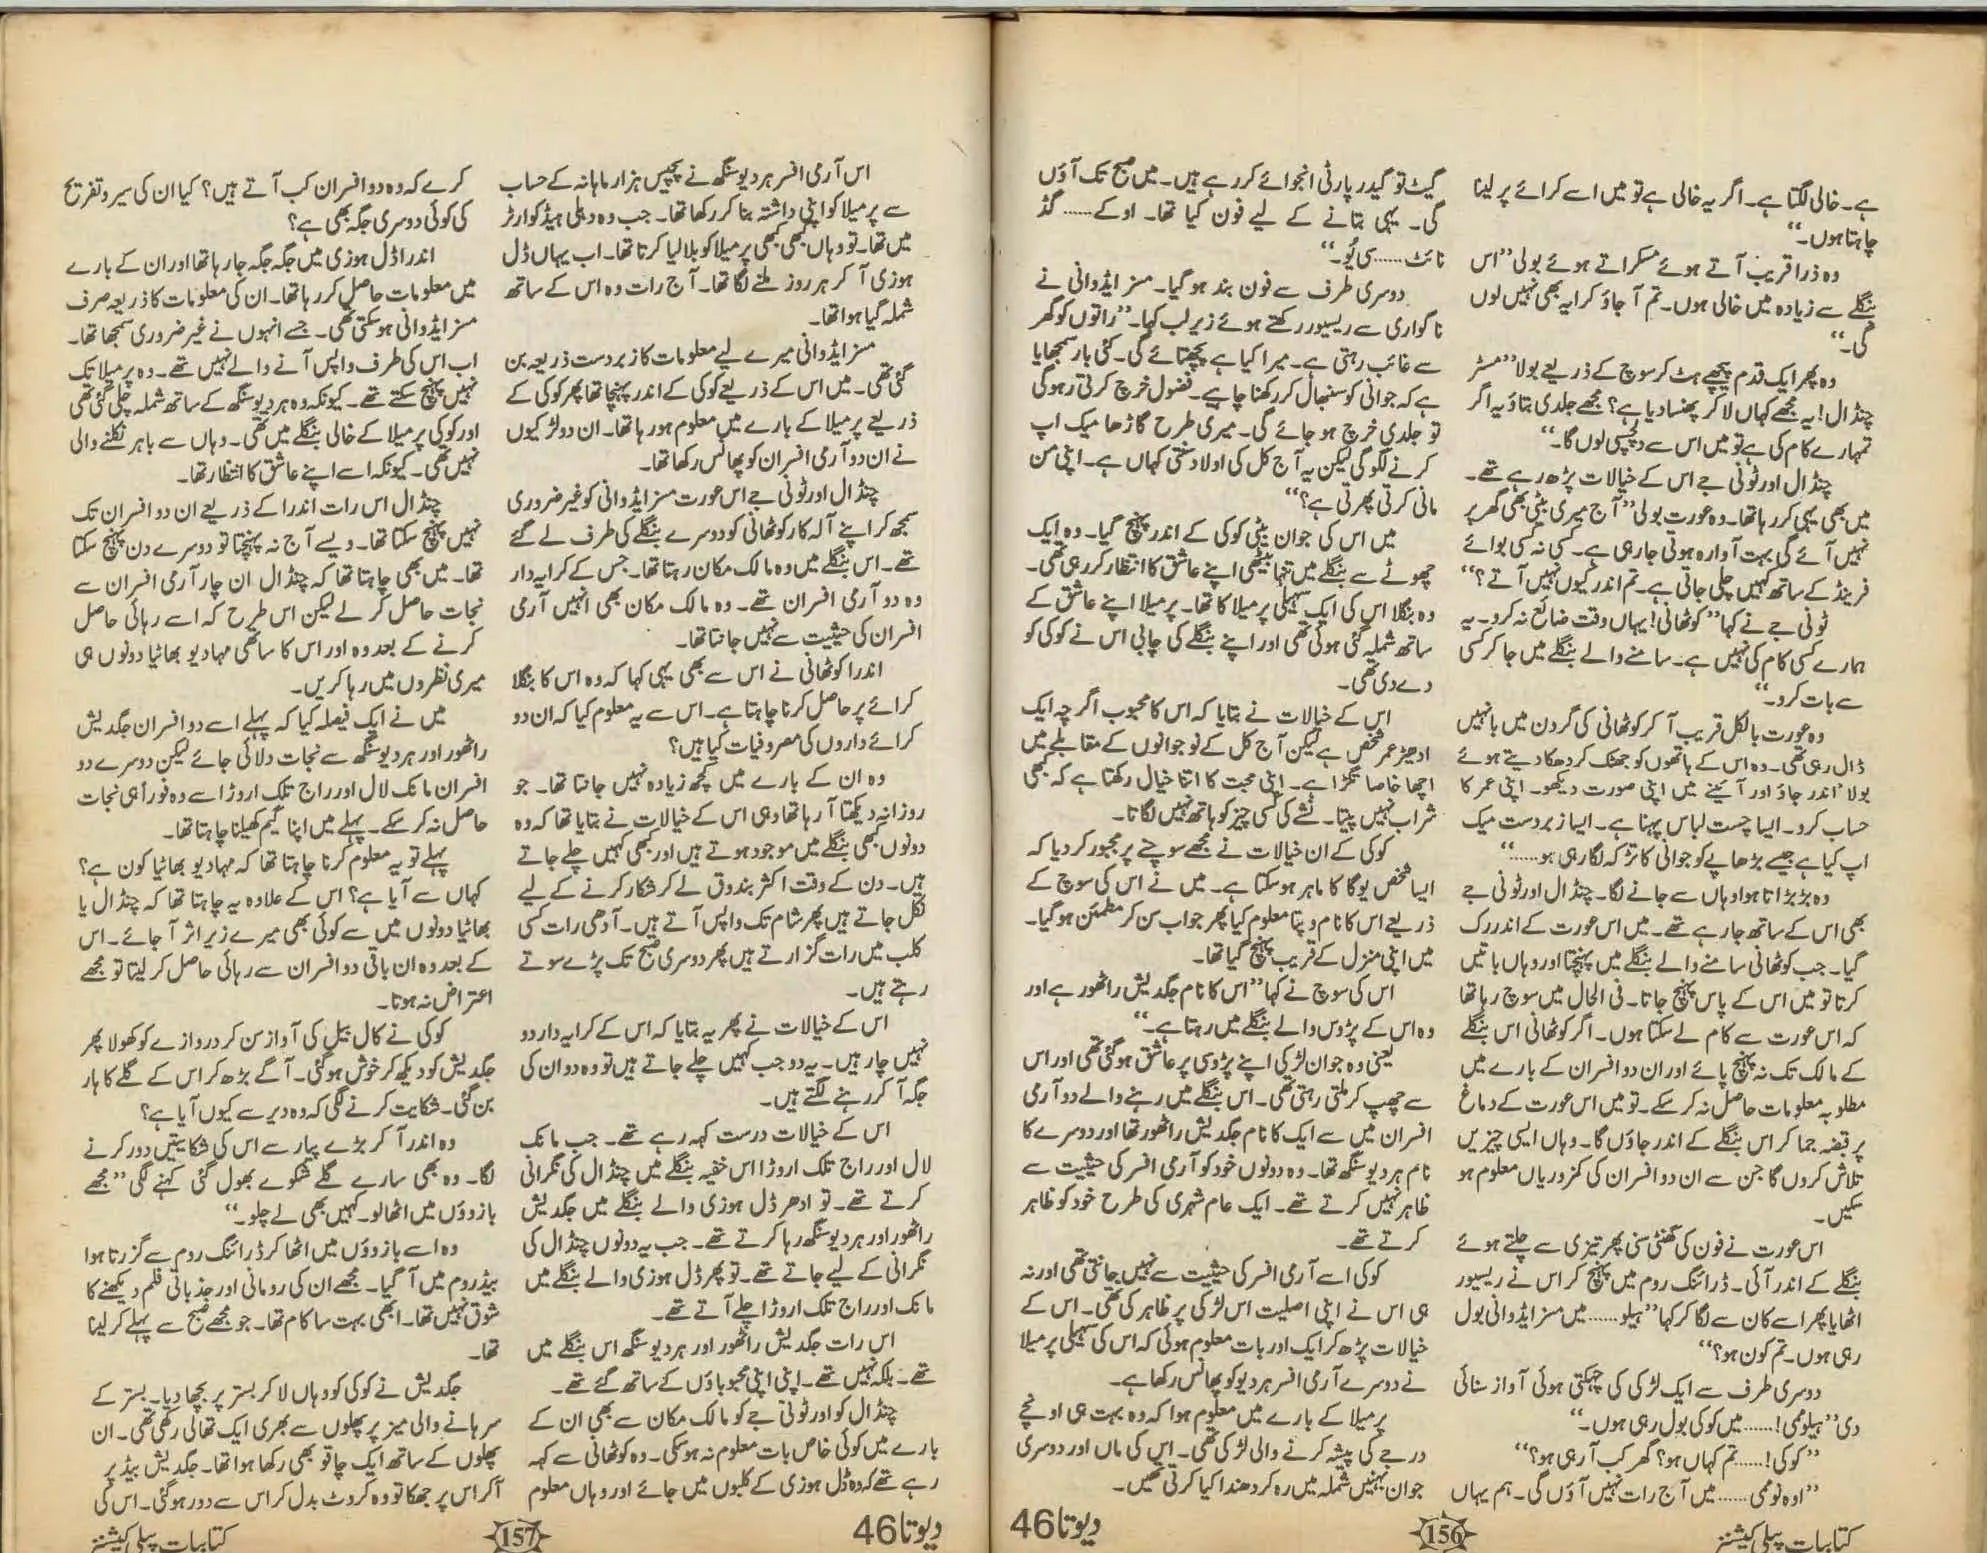 ہے۔ خالی لگتا ہے۔ اگر یہ خالی ہے تو میں اسے کرائے پر لینا
چاہتا ہوں۔“
وہ ذرا قریب آتے ہوئے مسکراتے ہوئے بولی ”اس
بنگلے سے زیادہ میں خالی ہوں۔ تم آ جاؤ کرایہ بھی نہیں لوں
گی۔“
وہ پھر ایک قدم پیچھے ہٹ کر سوچ کے ذریعے بولا ”مسٹر
چنڈال! یہ مجھے کہاں لا کر پھنسا دیا ہے؟ مجھے جلدی بتاؤ یہ اگر
تمہارے کام کی ہے تو میں اس سے دلچسپی لوں گا۔“
چنڈال اور ٹونی جے اس کے خیالات پڑھ رہے تھے۔
میں بھی یہی کر رہا تھا۔ وہ عورت بولی ”آج میری بیٹی بھی گھر پر
نہیں آئے گی بہت آوارہ ہوتی جا رہی ہے۔ کسی نہ کسی بوائے
فرینڈ کے ساتھ کہیں چلی جاتی ہے۔ تم اندر کیوں نہیں آتے؟“
ٹونی جے نے کہا ”کوٹھانی! یہاں وقت ضائع نہ کرو۔ یہ
ہمارے کسی کام کی نہیں ہے۔ سامنے والے بنگلے میں جا کر کسی
سے بات کرو۔“
وہ عورت بالکل قریب آ کر کوٹھانی کی گردن میں بانہیں
ڈال رہی تھی۔ وہ اس کے ہاتھوں کو جھٹک کر دھکا دیتے ہوئے
بولا ”اندر جاؤ اور آئینے میں اپنی صورت دیکھو۔ اپنی عمر کا
حساب کرو۔ ایسا چست لباس پہنا ہے۔ ایسا زبردست میک
اپ کیا ہے جیسے بڑھاپے کو جوانی کا تڑکہ لگا رہی ہو......“
وہ بڑبڑاتا ہوا وہاں سے جانے لگا۔ چنڈال اور ٹونی جے
بھی اس کے ساتھ جا رہے تھے۔ میں اس عورت کے اندر رک
گیا۔ جب کوٹھانی سامنے والے بنگلے میں پہنچتا اور وہاں باتیں
کرتا تو میں اس کے پاس پہنچ جاتا۔ فی الحال میں سوچ رہا تھا
کہ اس عورت سے کام لے سکتا ہوں۔ اگر کوٹھانی اس بنگلے
کے مالک تک نہ پہنچ پائے اور ان دو افسران کے بارے میں
مطلوبہ معلومات حاصل نہ کر سکے۔ تو میں اس عورت کے دماغ
پر قبضہ جما کر اس بنگلے کے اندر جاؤں گا۔ وہاں ایسی چیزیں
تلاش کروں گا جن سے ان دو افسران کی کمزوریاں معلوم ہو
سکیں۔
اس عورت نے فون کی گھنٹی سنی پھر تیزی سے چلتے ہوئے
بنگلے کے اندر آئی۔ ڈرائنگ روم میں پہنچ کر اس نے ریسیور
اٹھایا پھر اسے کان سے لگا کر کہا ”ہیلو...... میں مسز ایڈوانی بول
رہی ہوں۔ تم کون ہو؟“
دوسری طرف سے ایک لڑکی کی چہکتی ہوئی آواز سنائی
دی ”ہیلو ممی!...... میں کوکی بول رہی ہوں۔“
”کوکی!...... تم کہاں ہو؟ گھر کب آ رہی ہو؟“
”اوہ نو ممی...... میں آج رات نہیں آؤں گی۔ ہم یہاں
گیٹ تو گیدر پارٹی انجوائے کر رہے ہیں۔ میں صبح تک آؤں
گی۔ یہی بتانے کے لیے فون کیا تھا۔ او کے...... گڈ
نائٹ...... سی یُو۔“
دوسری طرف سے فون بند ہو گیا۔ مسز ایڈوانی نے
ناگواری سے ریسیور رکھتے ہوئے زیر لب کہا۔ ”راتوں کو گھر
سے غائب رہتی ہے۔ میرا کیا ہے پچھتائے گی۔ کئی بار سمجھایا
ہے کہ جوانی کو سنبھال کر رکھنا چاہیے۔ فضول خرچ کرتی رہو گی
تو جلدی خرچ ہو جائے گی۔ میری طرح گاڑھا میک اپ
کرنے لگو گی لیکن یہ آج کل کی اولاد سنتی کہاں ہے۔ اپنی من
مانی کرتی پھرتی ہے؟“
میں اس کی جوان بیٹی کوکی کے اندر پہنچ گیا۔ وہ ایک
چھوٹے سے بنگلے میں تنہا بیٹھی اپنے عاشق کا انتظار کر رہی تھی۔
وہ بنگلا اس کی ایک سہیلی پرمیلا کا تھا۔ پرمیلا اپنے عاشق کے
ساتھ شملہ گئی ہوئی تھی اور اپنے بنگلے کی چابی اس نے کوکی کو
دے دی تھی۔
اس کے خیالات نے بتایا کہ اس کا محبوب اگرچہ ایک
ادھیڑ عمر شخص ہے لیکن آج کل کے نوجوانوں کے مقابلے میں
اچھا خاصا تگڑا ہے۔ اپنی صحت کا اتنا خیال رکھتا ہے کہ کبھی
شراب نہیں پیتا۔ نشے کی کسی چیز کو ہاتھ نہیں لگاتا۔
کوکی کے ان خیالات نے مجھے سوچنے پر مجبور کر دیا کہ
ایسا شخص یوگا کا ماہر ہو سکتا ہے۔ میں نے اس کی سوچ کے
ذریعے اس کا نام و پتا معلوم کیا پھر جواب سن کر مطمئن ہو گیا۔
میں اپنی منزل کے قریب پہنچ گیا تھا۔
اس کی سوچ نے کہا ”اس کا نام جگدیش راٹھور ہے اور
وہ اس کے پڑوس والے بنگلے میں رہتا ہے۔“
یعنی وہ جوان لڑکی اپنے پڑوسی پر عاشق ہو گئی تھی اور اس
سے چھپ کر ملتی رہتی تھی۔ اس بنگلے میں رہنے والے دو آرمی
افسران میں سے ایک کا نام جگدیش راٹھور تھا اور دوسرے کا
نام ہردیو سنگھ تھا۔ وہ دونوں خود کو آرمی افسر کی حیثیت سے
ظاہر نہیں کرتے تھے۔ ایک عام شہری کی طرح خود کو ظاہر
کرتے تھے۔
کوکی اسے آرمی افسر کی حیثیت سے نہیں جانتی تھی اور نہ
ہی اس نے اپنی اصلیت اس لڑکی پر ظاہر کی تھی۔ اس کے
خیالات پڑھ کر ایک اور بات معلوم ہوئی کہ اس کی سہیلی پرمیلا
نے دوسرے آرمی افسر ہردیو کو پھانس رکھا ہے۔
پرمیلا کے بارے میں معلوم ہوا کہ وہ بہت ہی اونچے
درجے کی پیشہ کرنے والی لڑکی تھی۔ اس کی ماں اور دوسری
جوان بہنیں شملہ میں رہ کر دھندا کیا کرتی تھیں۔
کتابیات پبلی کیشنز
156
دیوتا 46
اس آرمی افسر ہردیو سنگھ نے پچیس ہزار ماہانہ کے حساب
سے پرمیلا کو اپنی داشتہ بنا کر رکھا تھا۔ جب وہ دہلی ہیڈکوارٹر
میں تھا۔ تو وہاں بھی کبھی پرمیلا کو بلا لیا کرتا تھا۔ اب یہاں ڈل
ہوزی آ کر ہر روز ملنے لگا تھا۔ آج رات وہ اس کے ساتھ
شملہ گیا ہوا تھا۔
مسز ایڈوانی میرے لیے معلومات کا زبردست ذریعہ بن
گئی تھی۔ میں اس کے ذریعے کوکی کے اندر پہنچا تھا پھر کوکی کے
ذریعے پرمیلا کے بارے میں معلوم ہو رہا تھا۔ ان دو لڑکیوں
نے ان دو آرمی افسران کو پھانس رکھا تھا۔
چنڈال اور ٹونی جے اس عورت مسز ایڈوانی کو غیر ضروری
سمجھ کر اپنے آلہ کار کوٹھانی کو دوسرے بنگلے کی طرف لے گئے
تھے۔ اس بنگلے میں وہ مالک مکان رہتا تھا۔ جس کے کرایہ دار
وہ دو آرمی افسران تھے۔ وہ مالک مکان بھی انہیں آرمی
افسران کی حیثیت سے نہیں جانتا تھا۔
اندرا کوٹھانی نے اس سے بھی یہی کہا کہ وہ اس کا بنگلا
کرائے پر حاصل کرنا چاہتا ہے۔ اس سے یہ معلوم کیا کہ ان دو
کرائے داروں کی مصروفیات کیا ہیں؟
وہ ان کے بارے میں کچھ زیادہ نہیں جانتا تھا۔ جو
روزانہ دیکھتا آ رہا تھا وہی اس کے خیالات نے بتایا تھا کہ وہ
دونوں کبھی بنگلے میں موجود ہوتے ہیں اور کبھی کہیں چلے جاتے
ہیں۔ دن کے وقت اکثر بندوق لے کر شکار کرنے کے لیے
نکل جاتے ہیں پھر شام تک واپس آتے ہیں۔ آدھی رات کسی
کلب میں رات گزارتے ہیں پھر دوسری صبح تک پڑے سوتے
رہتے ہیں۔
اس کے خیالات نے پھر یہ بتایا کہ اس کے کرایہ دار دو
نہیں چار ہیں۔ یہ دو جب کہیں چلے جاتے ہیں تو وہ دو ان کی
جگہ آ کر رہنے لگتے ہیں۔
اس کے خیالات درست کہہ رہے تھے۔ جب مانک
لال اور راج تلک اروڑا اس خفیہ بنگلے میں چنڈال کی نگرانی
کرتے تھے۔ تو ادھر ڈل ہوزی والے بنگلے میں جگدیش
راٹھور اور ہردیو سنگھ رہا کرتے تھے۔ جب یہ دونوں چنڈال کی
نگرانی کے لیے جاتے تھے۔ تو پھر ڈل ہوزی والے بنگلے میں
مانک اور راج تلک اروڑا چلے آتے تھے۔
اس رات جگدیش راٹھور اور ہردیو سنگھ اس بنگلے میں
تھے۔ بلکہ نہیں تھے۔ اپنی اپنی محبوباؤں کے ساتھ گئے تھے۔
چنڈال کو اور ٹونی جے کو مالک مکان سے بھی ان کے
بارے میں کوئی خاص بات معلوم نہ ہو سکی۔ وہ کوٹھانی سے کہہ
رہے تھے کہ وہ ڈل ہوزی کے کلبوں میں جائے اور وہاں معلوم
کرے کہ وہ دو افسران کب آتے ہیں؟ کیا ان کی سیر و تفریح
کی کوئی دوسری جگہ بھی ہے؟
اندرا ڈل ہوزی میں جگہ جگہ جا رہا تھا اور ان کے بارے
میں معلومات حاصل کر رہا تھا۔ ان کی معلومات کا ذریعہ صرف
مسز ایڈوانی ہو سکتی تھی۔ جسے انہوں نے غیر ضروری سمجھا تھا۔
اب اس کی طرف واپس آنے والے نہیں تھے۔ وہ پرمیلا تک
نہیں پہنچ سکتے تھے۔ کیونکہ وہ ہردیو سنگھ کے ساتھ شملہ چلی گئی تھی
اور کوکی پرمیلا کے خالی بنگلے میں تھی۔ وہاں سے باہر نکلنے والی
نہیں تھی۔ کیونکہ اسے اپنے عاشق کا انتظار تھا۔
چنڈال اس رات اندرا کے ذریعے ان دو افسران تک
نہیں پہنچ سکتا تھا۔ ویسے آج نہ پہنچتا تو دوسرے دن پہنچ سکتا
تھا۔ میں بھی چاہتا تھا کہ چنڈال ان چار آرمی افسران سے
نجات حاصل کر لے لیکن اس طرح کہ اسے رہائی حاصل
کرنے کے بعد وہ اور اس کا ساتھی مہادیو بھاٹیا دونوں ہی
میری نظروں میں رہا کریں۔
میں نے ایک فیصلہ کیا کہ پہلے اسے دو افسران جگدیش
راٹھور اور ہردیو سنگھ سے نجات دلائی جائے لیکن دوسرے دو
افسران مانک لال اور راج تلک اروڑا سے وہ فوراً ہی نجات
حاصل نہ کر سکے۔ پہلے میں اپنا گیم کھیلنا چاہتا تھا۔
پہلے تو یہ معلوم کرنا چاہتا تھا کہ مہادیو بھاٹیا کون ہے؟
کہاں سے آیا ہے؟ اس کے علاوہ یہ چاہتا تھا کہ چنڈال یا
بھاٹیا دونوں میں سے کوئی بھی میرے زیر اثر آ جائے۔ اس
کے بعد وہ ان باقی دو افسران سے رہائی حاصل کر لیتا تو مجھے
اعتراض نہ ہوتا۔
کوکی نے کال بیل کی آواز سن کر دروازے کو کھولا پھر
جگدیش کو دیکھ کر خوش ہو گئی۔ آگے بڑھ کر اس کے گلے کا ہار
بن گئی۔ شکایت کرنے لگی کہ وہ دیر سے کیوں آیا ہے؟
وہ اندر آ کر بڑے پیار سے اس کی شکایتیں دور کرنے
لگا۔ وہ بھی سارے گلے شکوے بھول گئی کہنے لگی ”مجھے
بازوؤں میں اٹھا لو۔ کہیں بھی لے چلو۔“
وہ اسے بازوؤں میں اٹھا کر ڈرائنگ روم سے گزرتا ہوا
بیڈ روم میں آ گیا۔ مجھے ان کی رومانی اور جذباتی فلم دیکھنے کا
شوق نہیں تھا۔ ابھی بہت سا کام تھا۔ جو مجھے صبح سے پہلے کر لینا
تھا۔
جگدیش نے کوکی کو وہاں لا کر بستر پر بچھا دیا۔ بستر کے
سرہانے والی میز پر پھلوں سے بھری ایک تھالی رکھی تھی۔ ان
پھلوں کے ساتھ ایک چاقو بھی رکھا ہوا تھا۔ جگدیش بیڈ پر
آ کر اس پر جھکا تو وہ کروٹ بدل کر اس سے دور ہو گئی۔ اس کی
دیوتا 46
157
کتابیات پبلی کیشنز